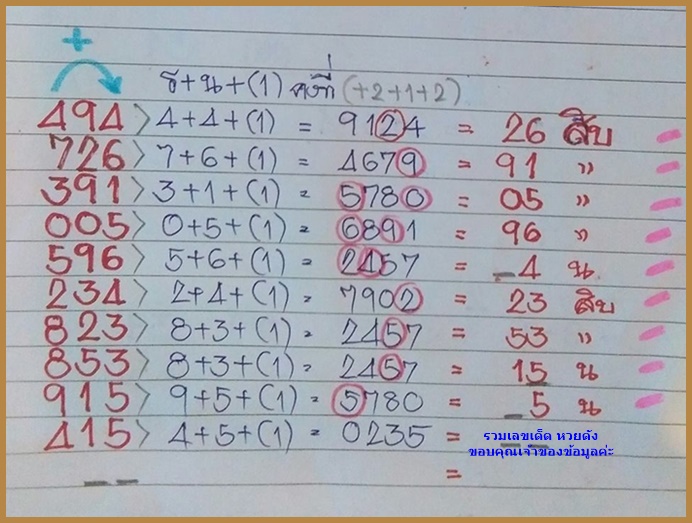 +
ร+น+(1) คงที่ (+2+1+2)
494 > 4+4+(1) = 9124 = 26 สิบ
726 > 7+6+(1) = 4679 = 91 "
391 > 3+1+(1) = 5780 = 05 "
005 > 0+5+(1) = 6891 = 96 "
596 > 5+6+(1) = 2457 = _4 น
234 > 2+4+(1) = 7902 = 23 สิบ
823 > 8+3+(1) = 2457 = 53 "
853 > 8+3+(1) = 2457 = 15 น
915 > 9+5+(1) = 5780 = _5 น
415 > 4+5+(1) = 0235 =
รวมเลขเด็ด หวยดัง
ขอบคุณเจ้าของข้อมูลค่ะ
_ _ =